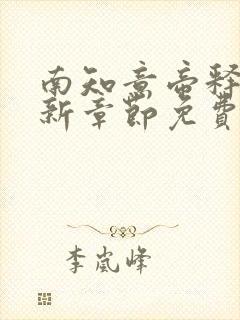 南知意帝释
新章节免费
李岚峰